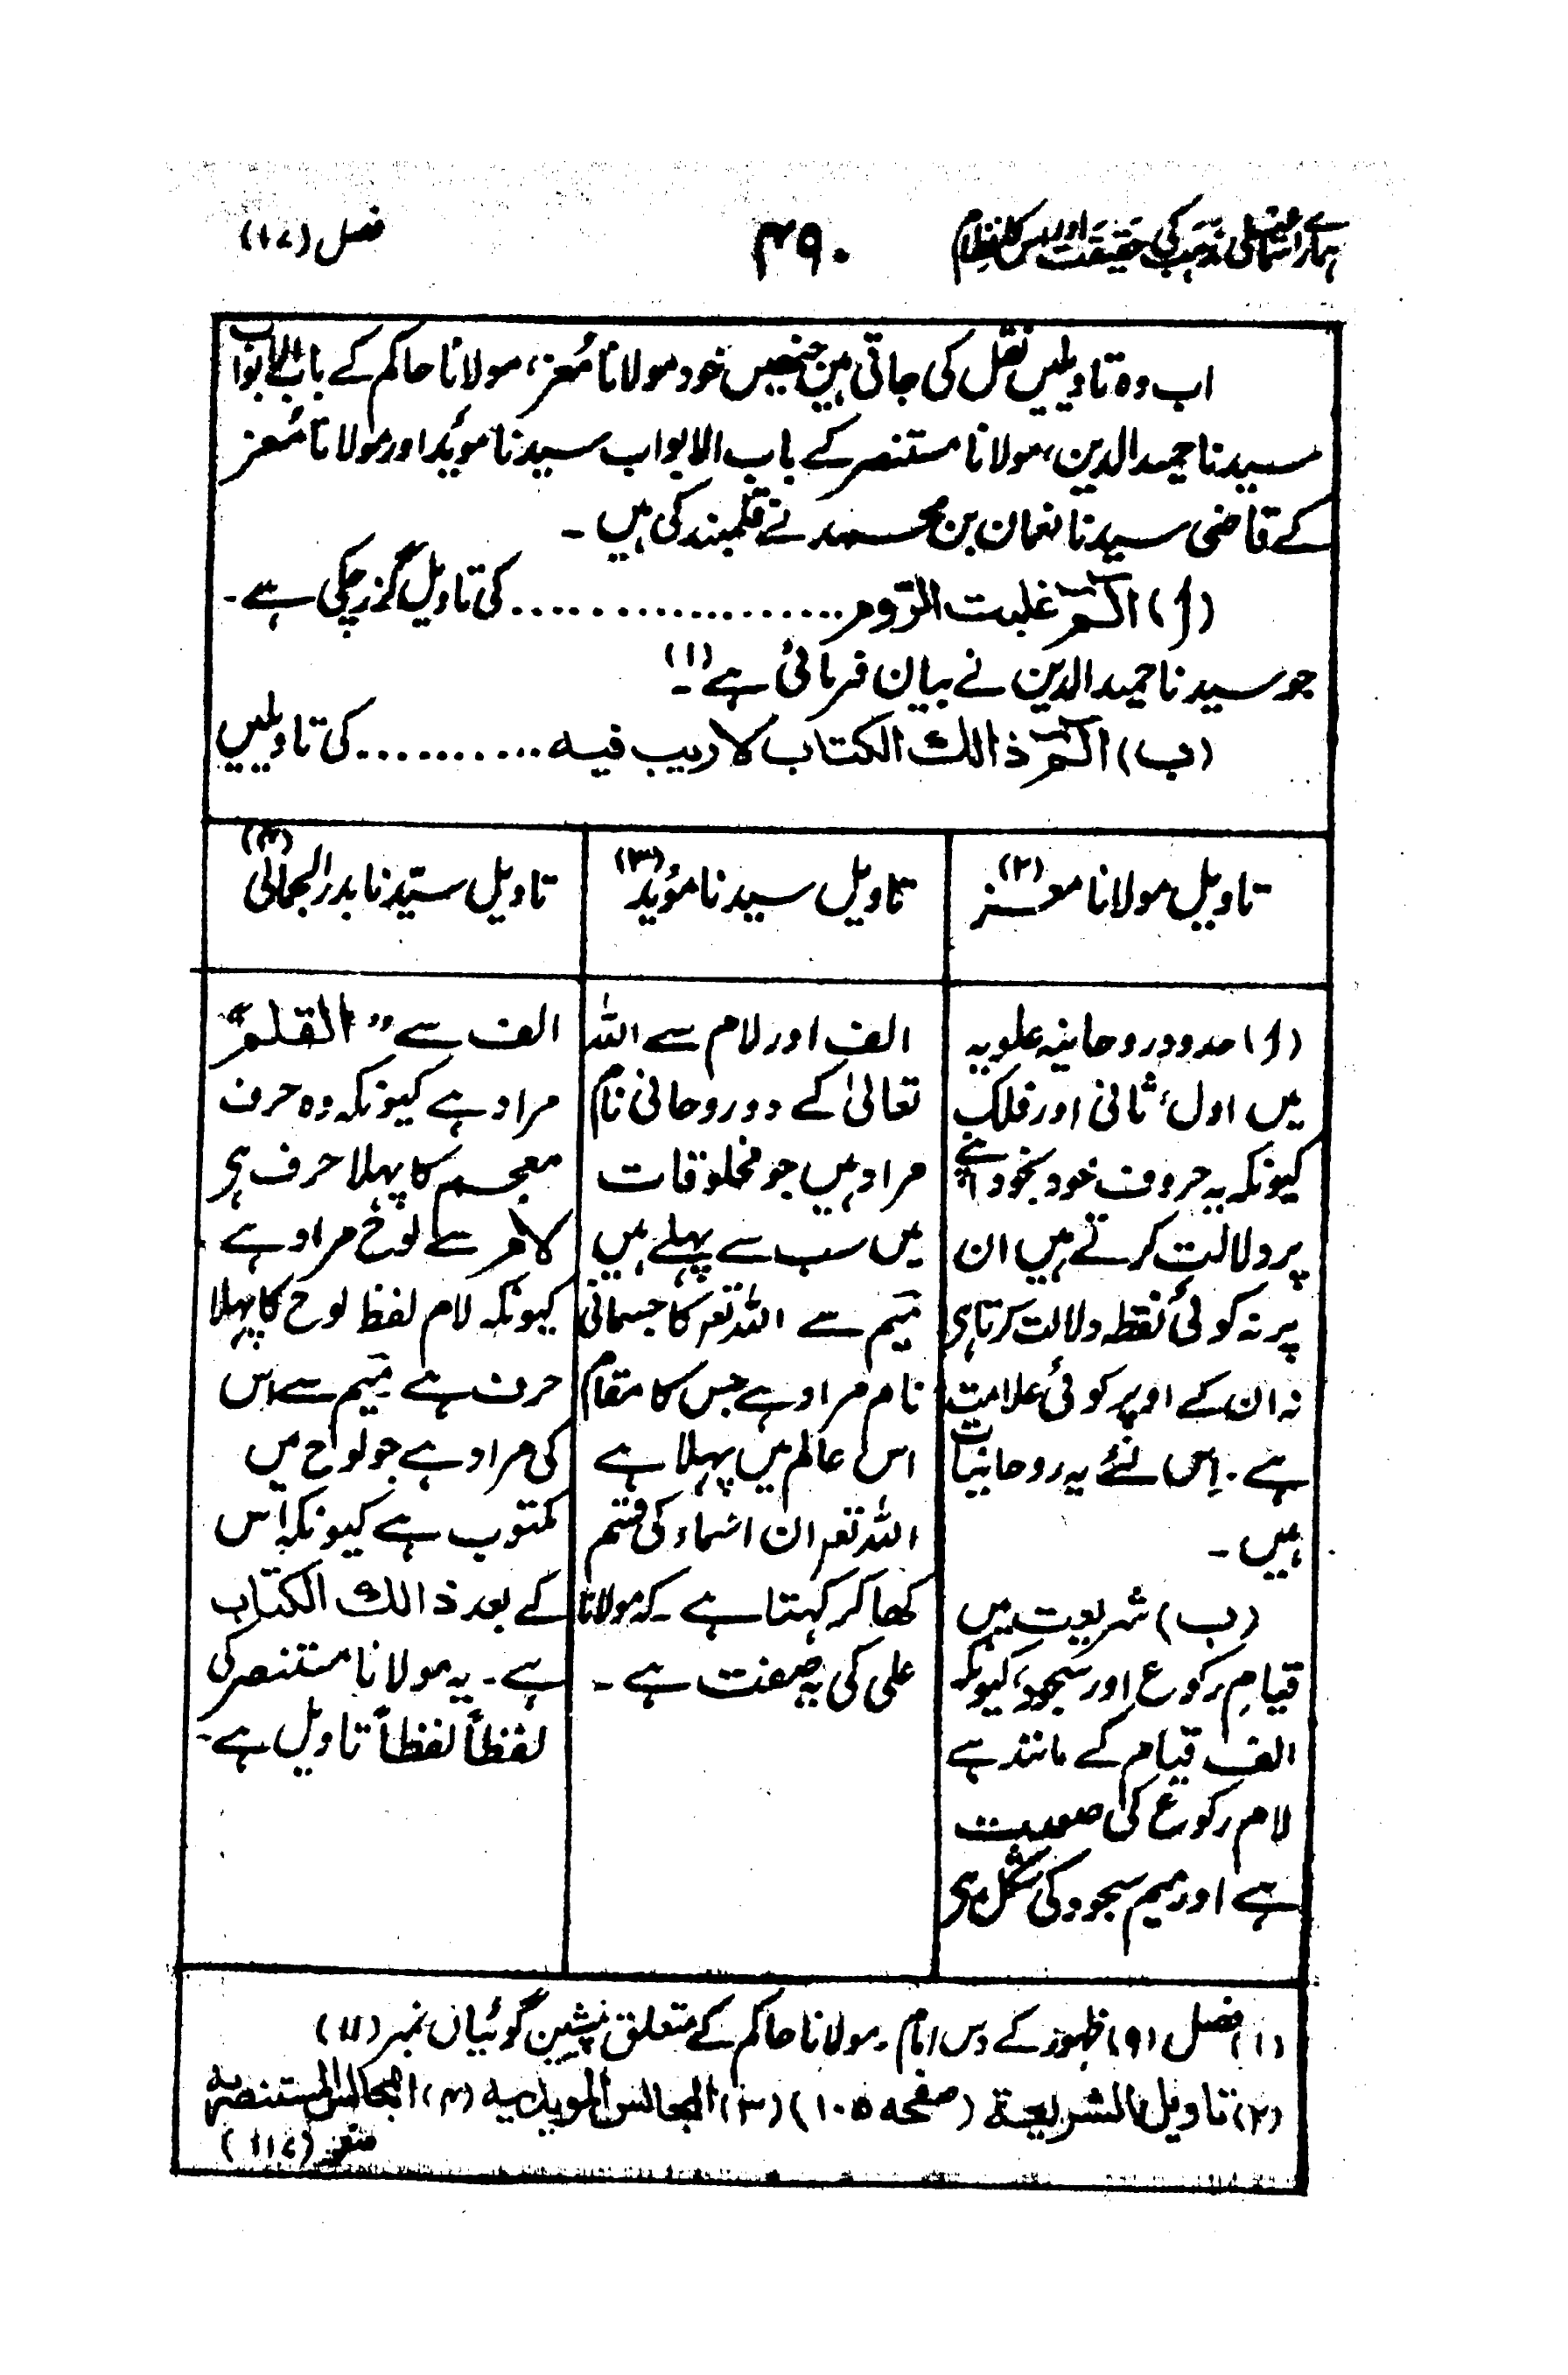 ہمارے اسماعیلی مذہب کی حقیقت اور اس کا نظام
۴۹۰
فصل (۱۷)
اب وہ تاویلیں نقل کی جاتی ہیں جنھیں خود مولانا مُعز، مولانا حاکم کے باب الابواب
سیدنا حمید الدین، مولانا مستنصر کے باب الابواب سیدنا موئید اور مولانا مُعز
کے قاضی سیدنا نعمان بن محمد نے قلمبند کی ہیں ۔
(ا) الٓمٓ غلبت الرّوم .................. کی تاویل گزر چکی ہے ۔
جو سیدنا حمید الدین نے بیان فرمائی ہے (۱) ۔
(ب) الٓمٓ ذالك الكتاب لا ریب فیه .......... کی تاویلیں
تاویل مولانا معز (۲)
(ا) حدود روحانیہ علویہ
میں اول، ثانی اور فلک
کیونکہ یہ حروف خود بخود اپنے
پر دلالت کرتے ہیں ان
پر نہ کوئی نقطہ دلالت کرتا ہی
نہ ان کے اوپر کوئی علامت
ہے ۔ اِس لئے یہ روحانیات
ہیں ۔
(ب) شریعت میں
قیام، رکوع اور سجود، کیونکہ
الف قیام کے مانند ہے
لام رکوع کی صورت
ہے اور میم سجود کی شکل ہی
تاویل سیدنا مؤید (۳)
الف اور لام سے اللہ
تعالیٰ کے دو روحانی نام
مراد ہیں جو مخلوقات
میں سب سے پہلے ہیں
میم سے اللہ تعہ کا جسمانی
نام مراد ہے جس کا مقام
اس عالم میں پہلا ہے
اللہ تعہ ان اسماء کی قسم
کھا کر کہتا ہے ۔ کہ مولانا
علی کی یہ صفت ہے ۔
تاویل سیّدنا بدر الجمالی (۴)
الف سے ”القلم“
مراد ہے کیونکہ وہ حرف
معجم کا پہلا حرف ہی
لام سے لوح مراد ہے
کیونکہ لام لفظ لوح کا پہلا
حرف ہے میم سے اس
کی مراد ہے جو لوح میں
مکتوب ہے کیونکہ اس
کے بعد ذالك الکتاب
ہے ۔ یہ مولانا مستنصر کی
لفظاً لفظاً تاویل ہے ۔
(۱) فصل (۹) ظہور کے دس امام ۔ مولانا حاکم کے متعلق پیشین گوئیاں نمبر (۱۱)
(۲) تاویل الشریعة (صفحہ ۱۰۵) (۳) المجالس المویدیہ (۴) المجالس المستنصریہ
صفحہ (۱۱۷)